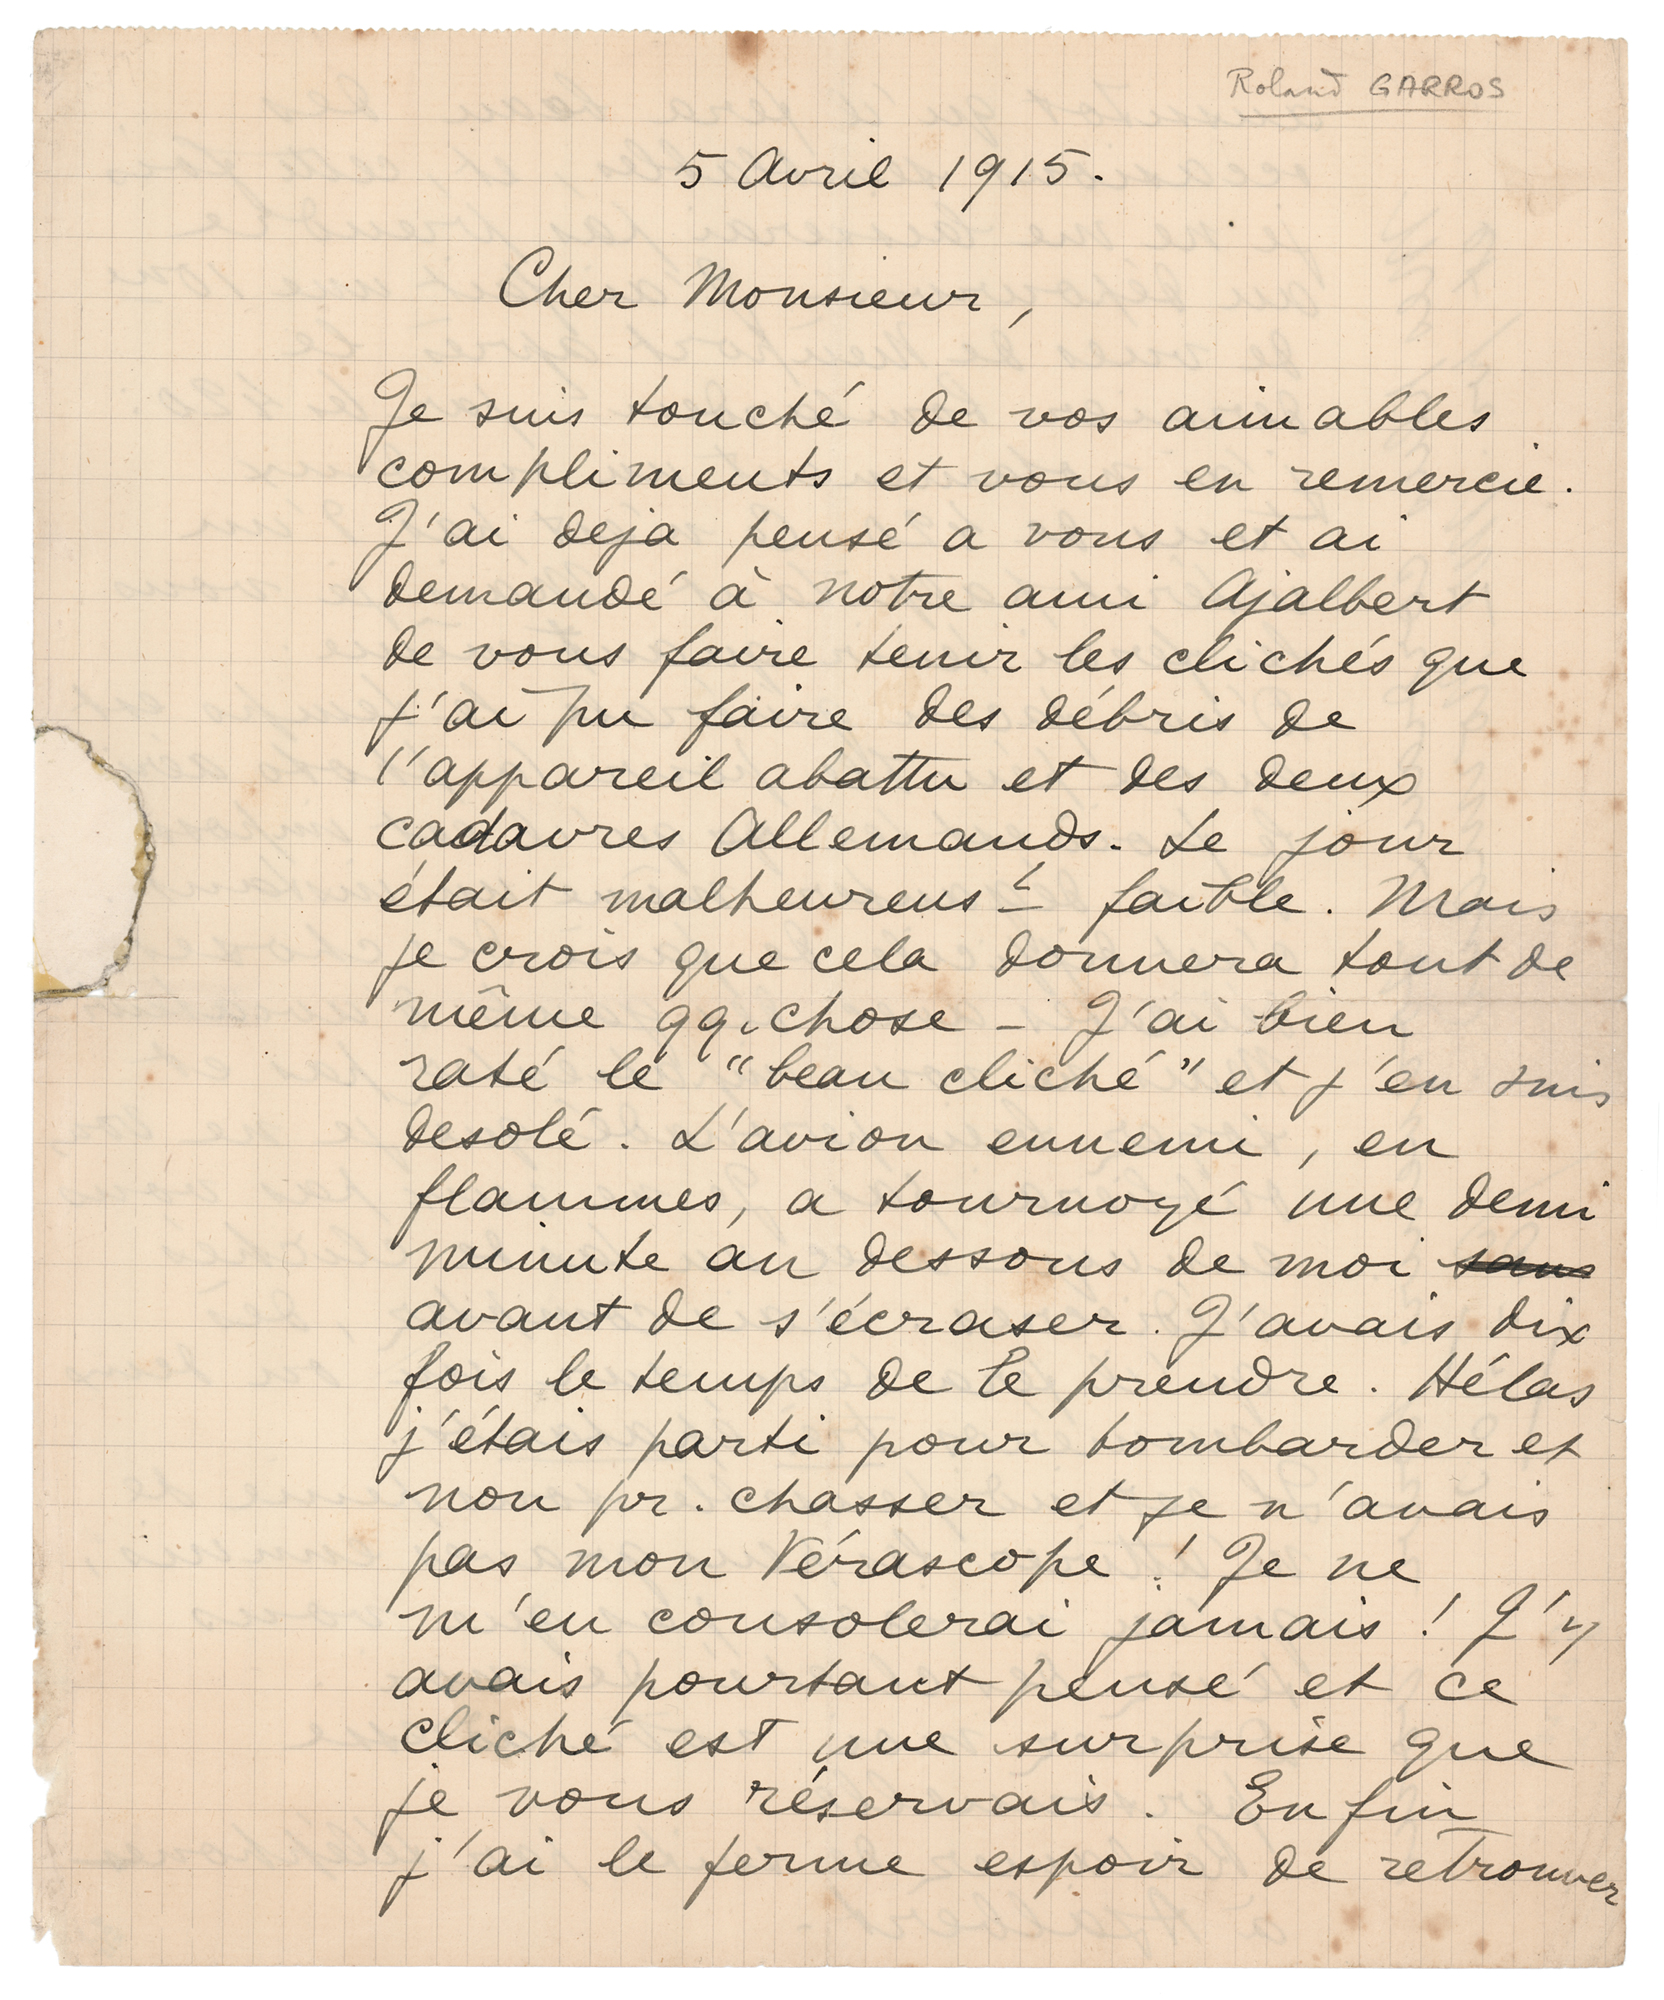 Roland GARROS
5 Avril 1915.
Cher Monsieur,
Je suis touché de vos aimables
compliments et vous en remercie.
J'ai deja pensé a vous et ai
demandé à notre ami Ajalbert
de vous faire tenir les clichés que
j'ai pu faire des débris de
l'appareil abattu et des deux
cadavres Allemands. Le jour
était malheureus^t faible. Mais
je crois que cela donnera tout de
même qq. chose - J'ai bien
raté le "beau cliché" et j'en suis
desolé. L'avion ennemi, en
flammes, a tournoyé une demi
minute au dessous de moi ~~sans~~
avant de s'écraser. J'avais dix
fois le temps de le prendre. Hélas
j'étais parti pour bombarder et
non pr. chasser et je n'avais
pas mon Vérascope ! Je ne
m'en consolerai jamais ! J'y
avais pourtant pensé et ce
cliché est une surprise que
je vous réservais. Enfin
j'ai le ferme espoir de retrouver